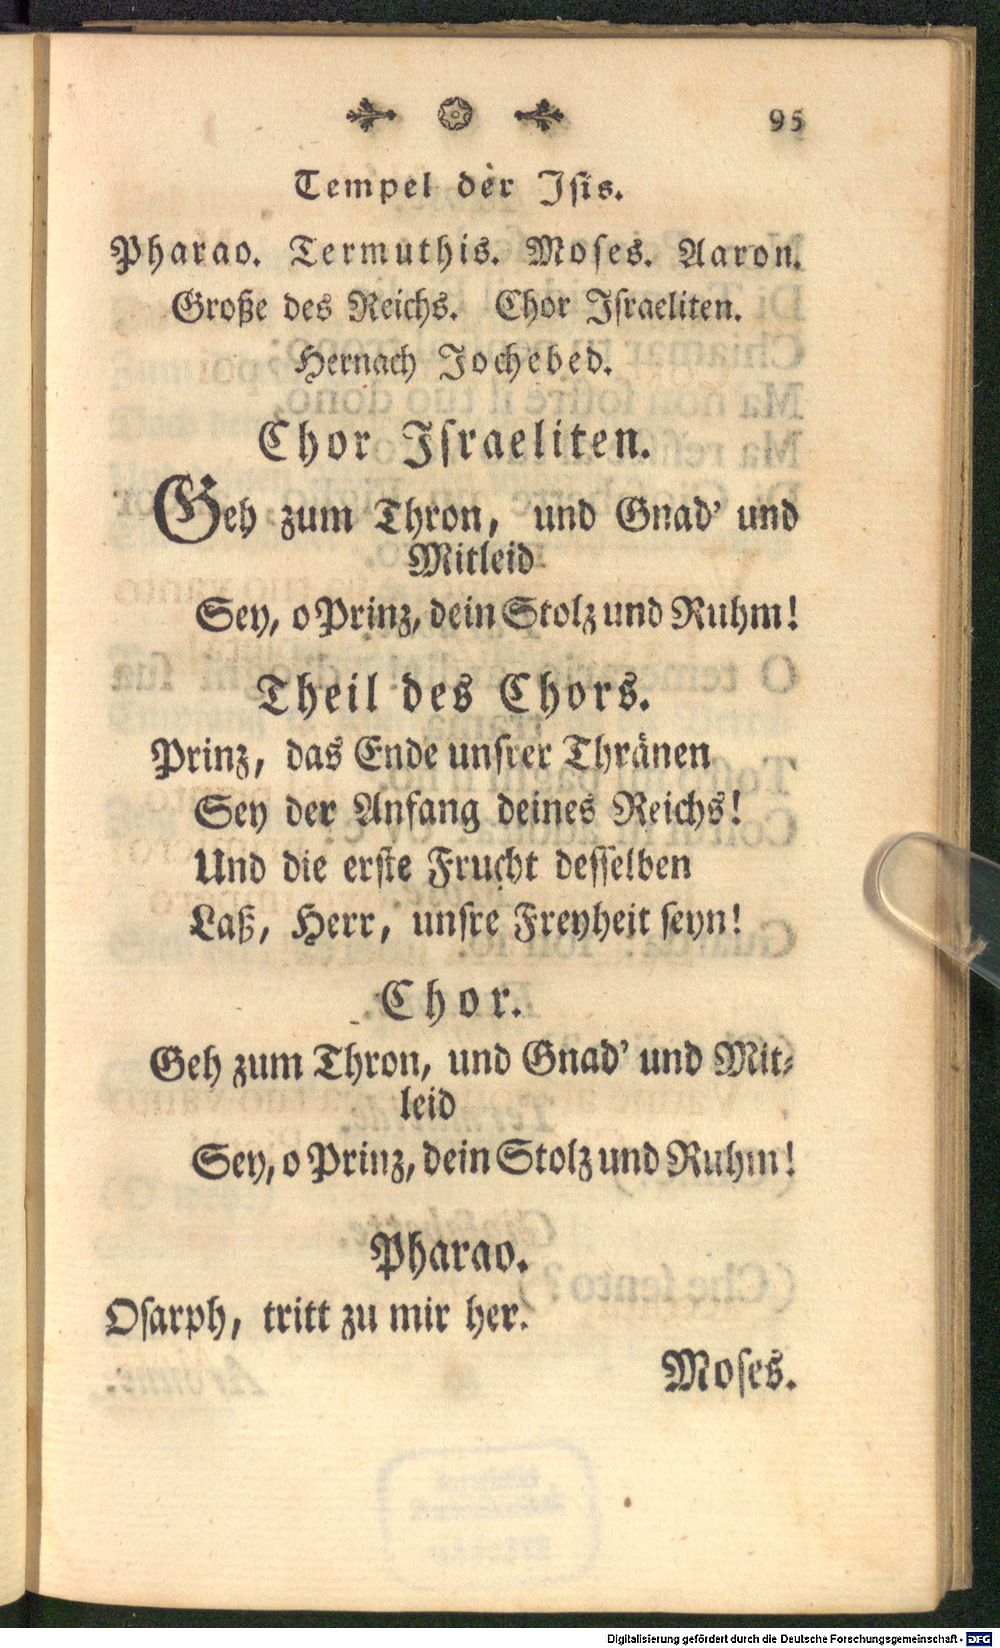 95
Tempel der Iſis.
Pharao. Termuthis. Moſes. Aaron.
Große des Reichs. Chor Iſraeliten.
Hernach Jochebed.
Chor Iſraeliten.
Geh zum Thron, und Gnad' und
Mitleid
Sey, o Prinz, dein Stolz und Ruhm!
Theil des Chors.
Prinz, das Ende unſrer Thränen
Sey der Anfang deines Reichs!
Und die erſte Frucht deſſelben
Laß, Herr, unſre Freyheit ſeyn!
Chor.
Geh zum Thron, und Gnad' und Mit⸗
leid
Sey, o Prinz, dein Stolz und Ruhm!
Pharao.
Oſarph, tritt zu mir her.
Moſes.
Digitalisierung gefördert durch die Deutsche Forschungsgemeinschaft - DFG